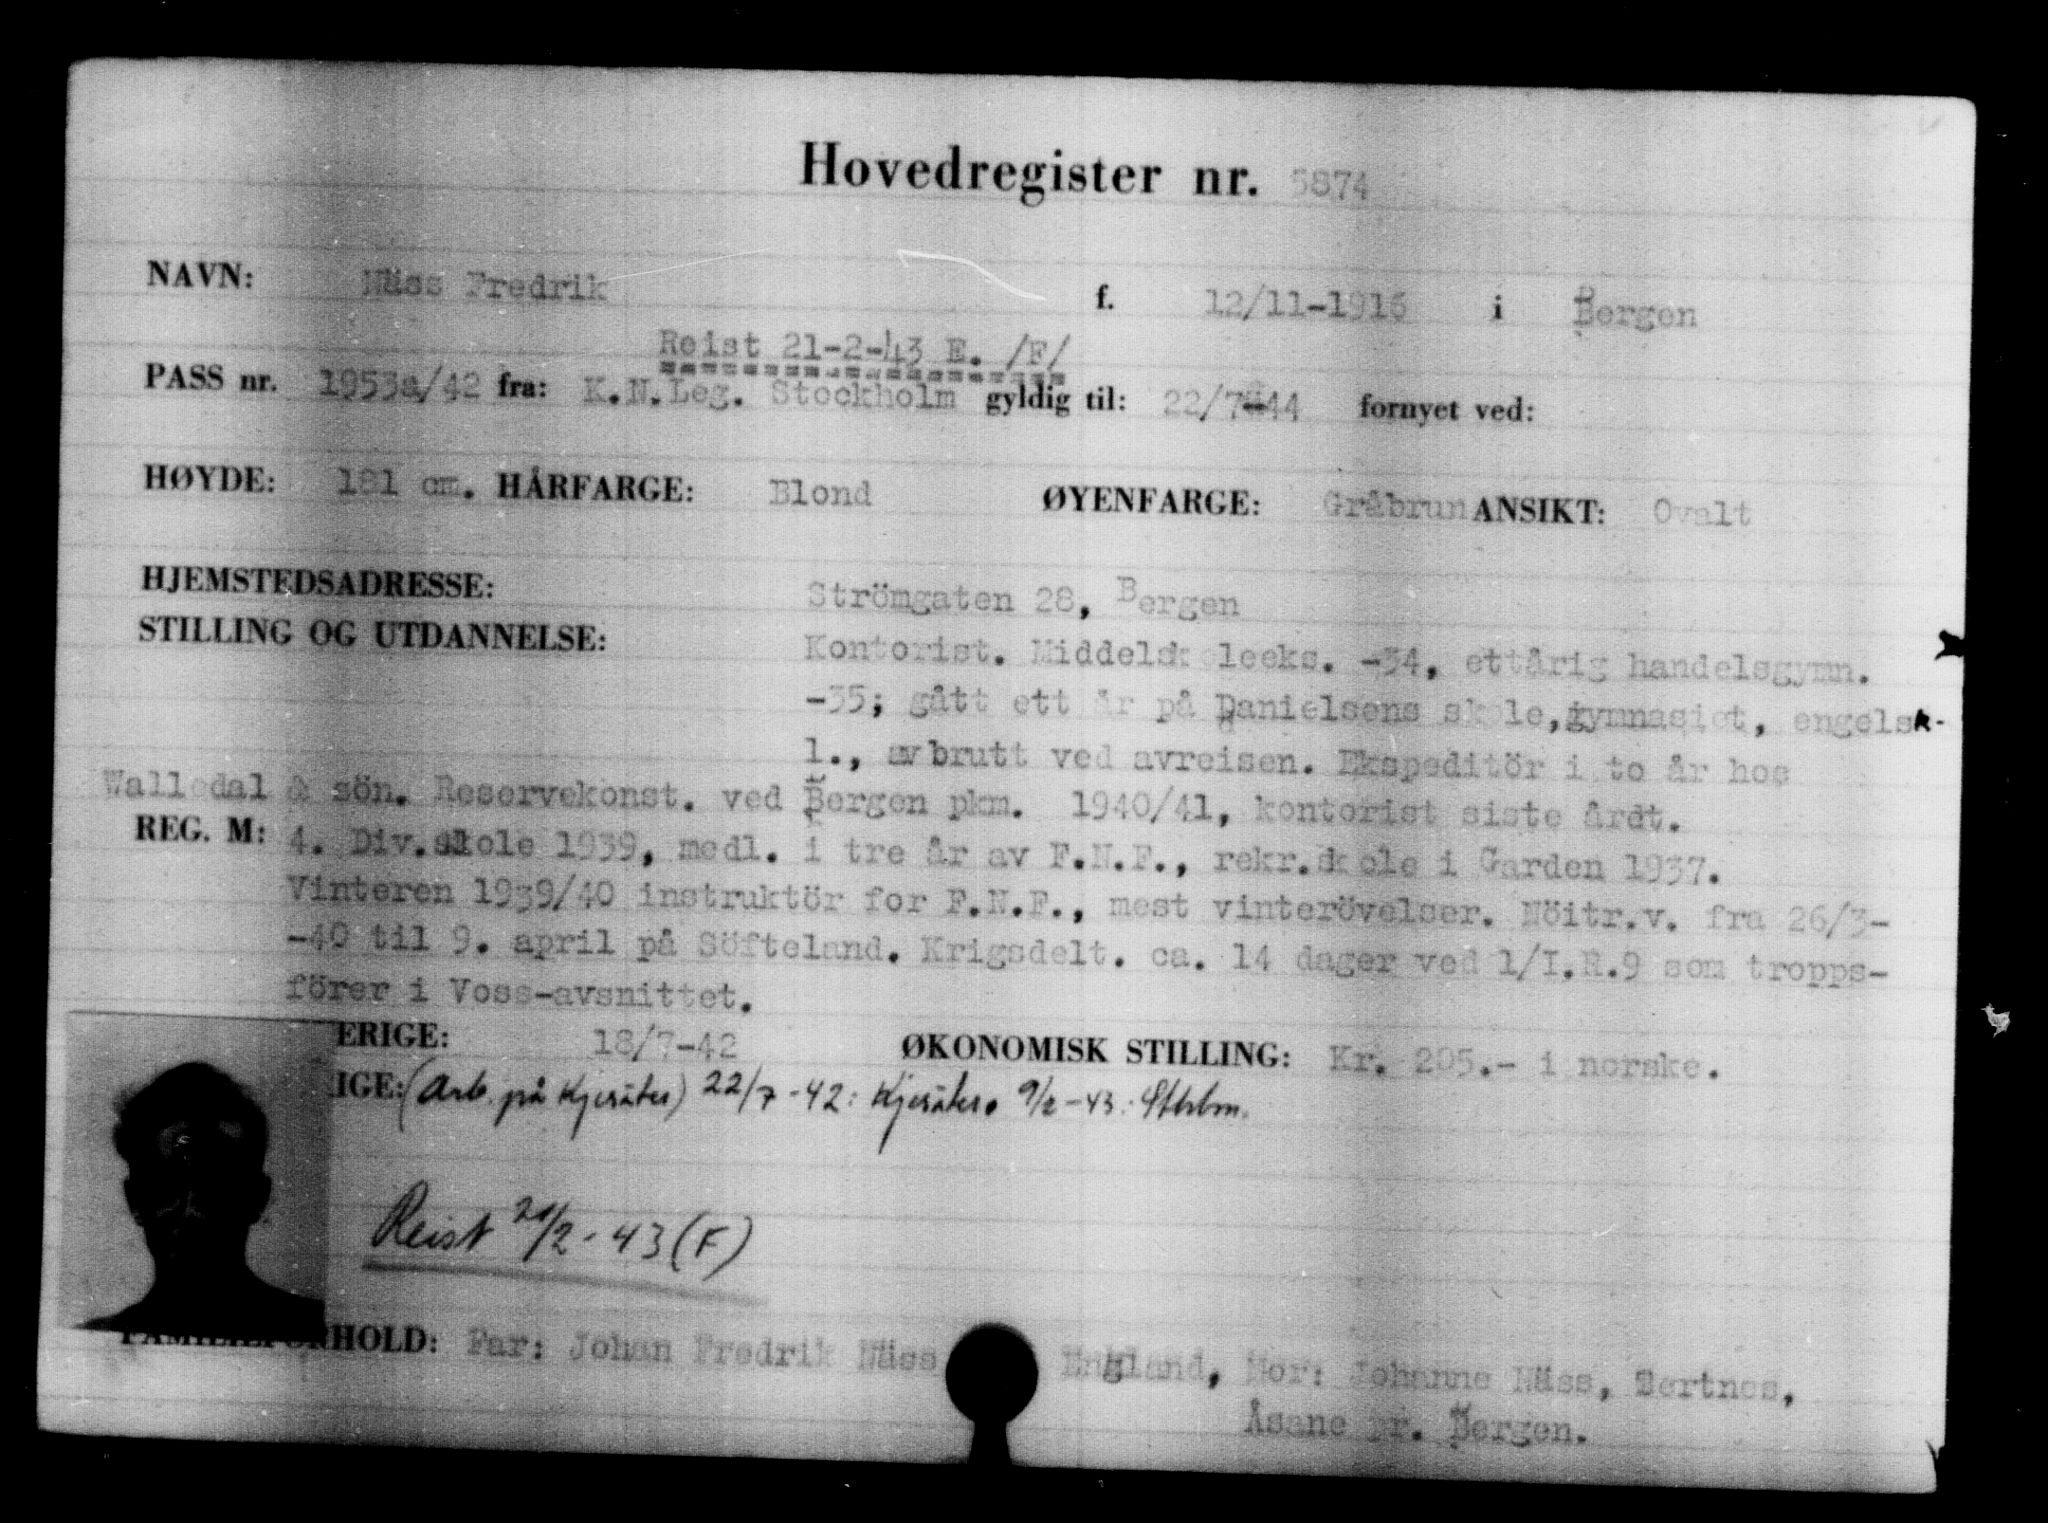 Hovedregister nr. 5874
NAVN: Näss Fredrik f. 12/11-1916 i Bergen
Reist 21-2-43 E. /F/
PASS nr. 1953a/42 fra: K.N.Leg. Stockholm gyldig til: 22/7-44 fornyet ved:
HØYDE: 181 cm. HÅRFARGE: Blond ØYENFARGE: Gråbrun ANSIKT: Ovalt
HJEMSTEDSADRESSE: Strömgaten 28, Bergen
STILLING OG UTDANNELSE: Kontorist. Middelskoleeks. -34, ettårig handelsgymn.
-35; gått ett år på Danielsens skole, gymnasiet, engelsk-
l., avbrutt ved avreisen. Ekspeditör i to år hos
Walledal & sön. Reservekonst. ved Bergen pkm. 1940/41, kontorist siste årdt.
REG. M: 4. Div.skole 1939, medl. i tre år av F.N.F., rekr.skole i Garden 1937.
Vinteren 1939/40 instruktör for F.N.F., mest vinterövelser. Nöitr.v. fra 26/3-
-40 til 9. april på Söfteland. Krigsdelt. ca. 14 dager ved 1/I.R.9 som tropps-
förer i Voss-avsnittet.
ERIGE: 18/7-42 ØKONOMISK STILLING: Kr. 205.- i norske.
IGE: (Arb. på Kjesäter) 22/7-42: Kjesäter. 9/2-43: Sthlm.
Reist 21/2-43 (F)
FAMILIEFORHOLD: Far: Johan Fredrik Näss England, Mor: Johanne Näss, Tertnes,
Åsane pr. Bergen.